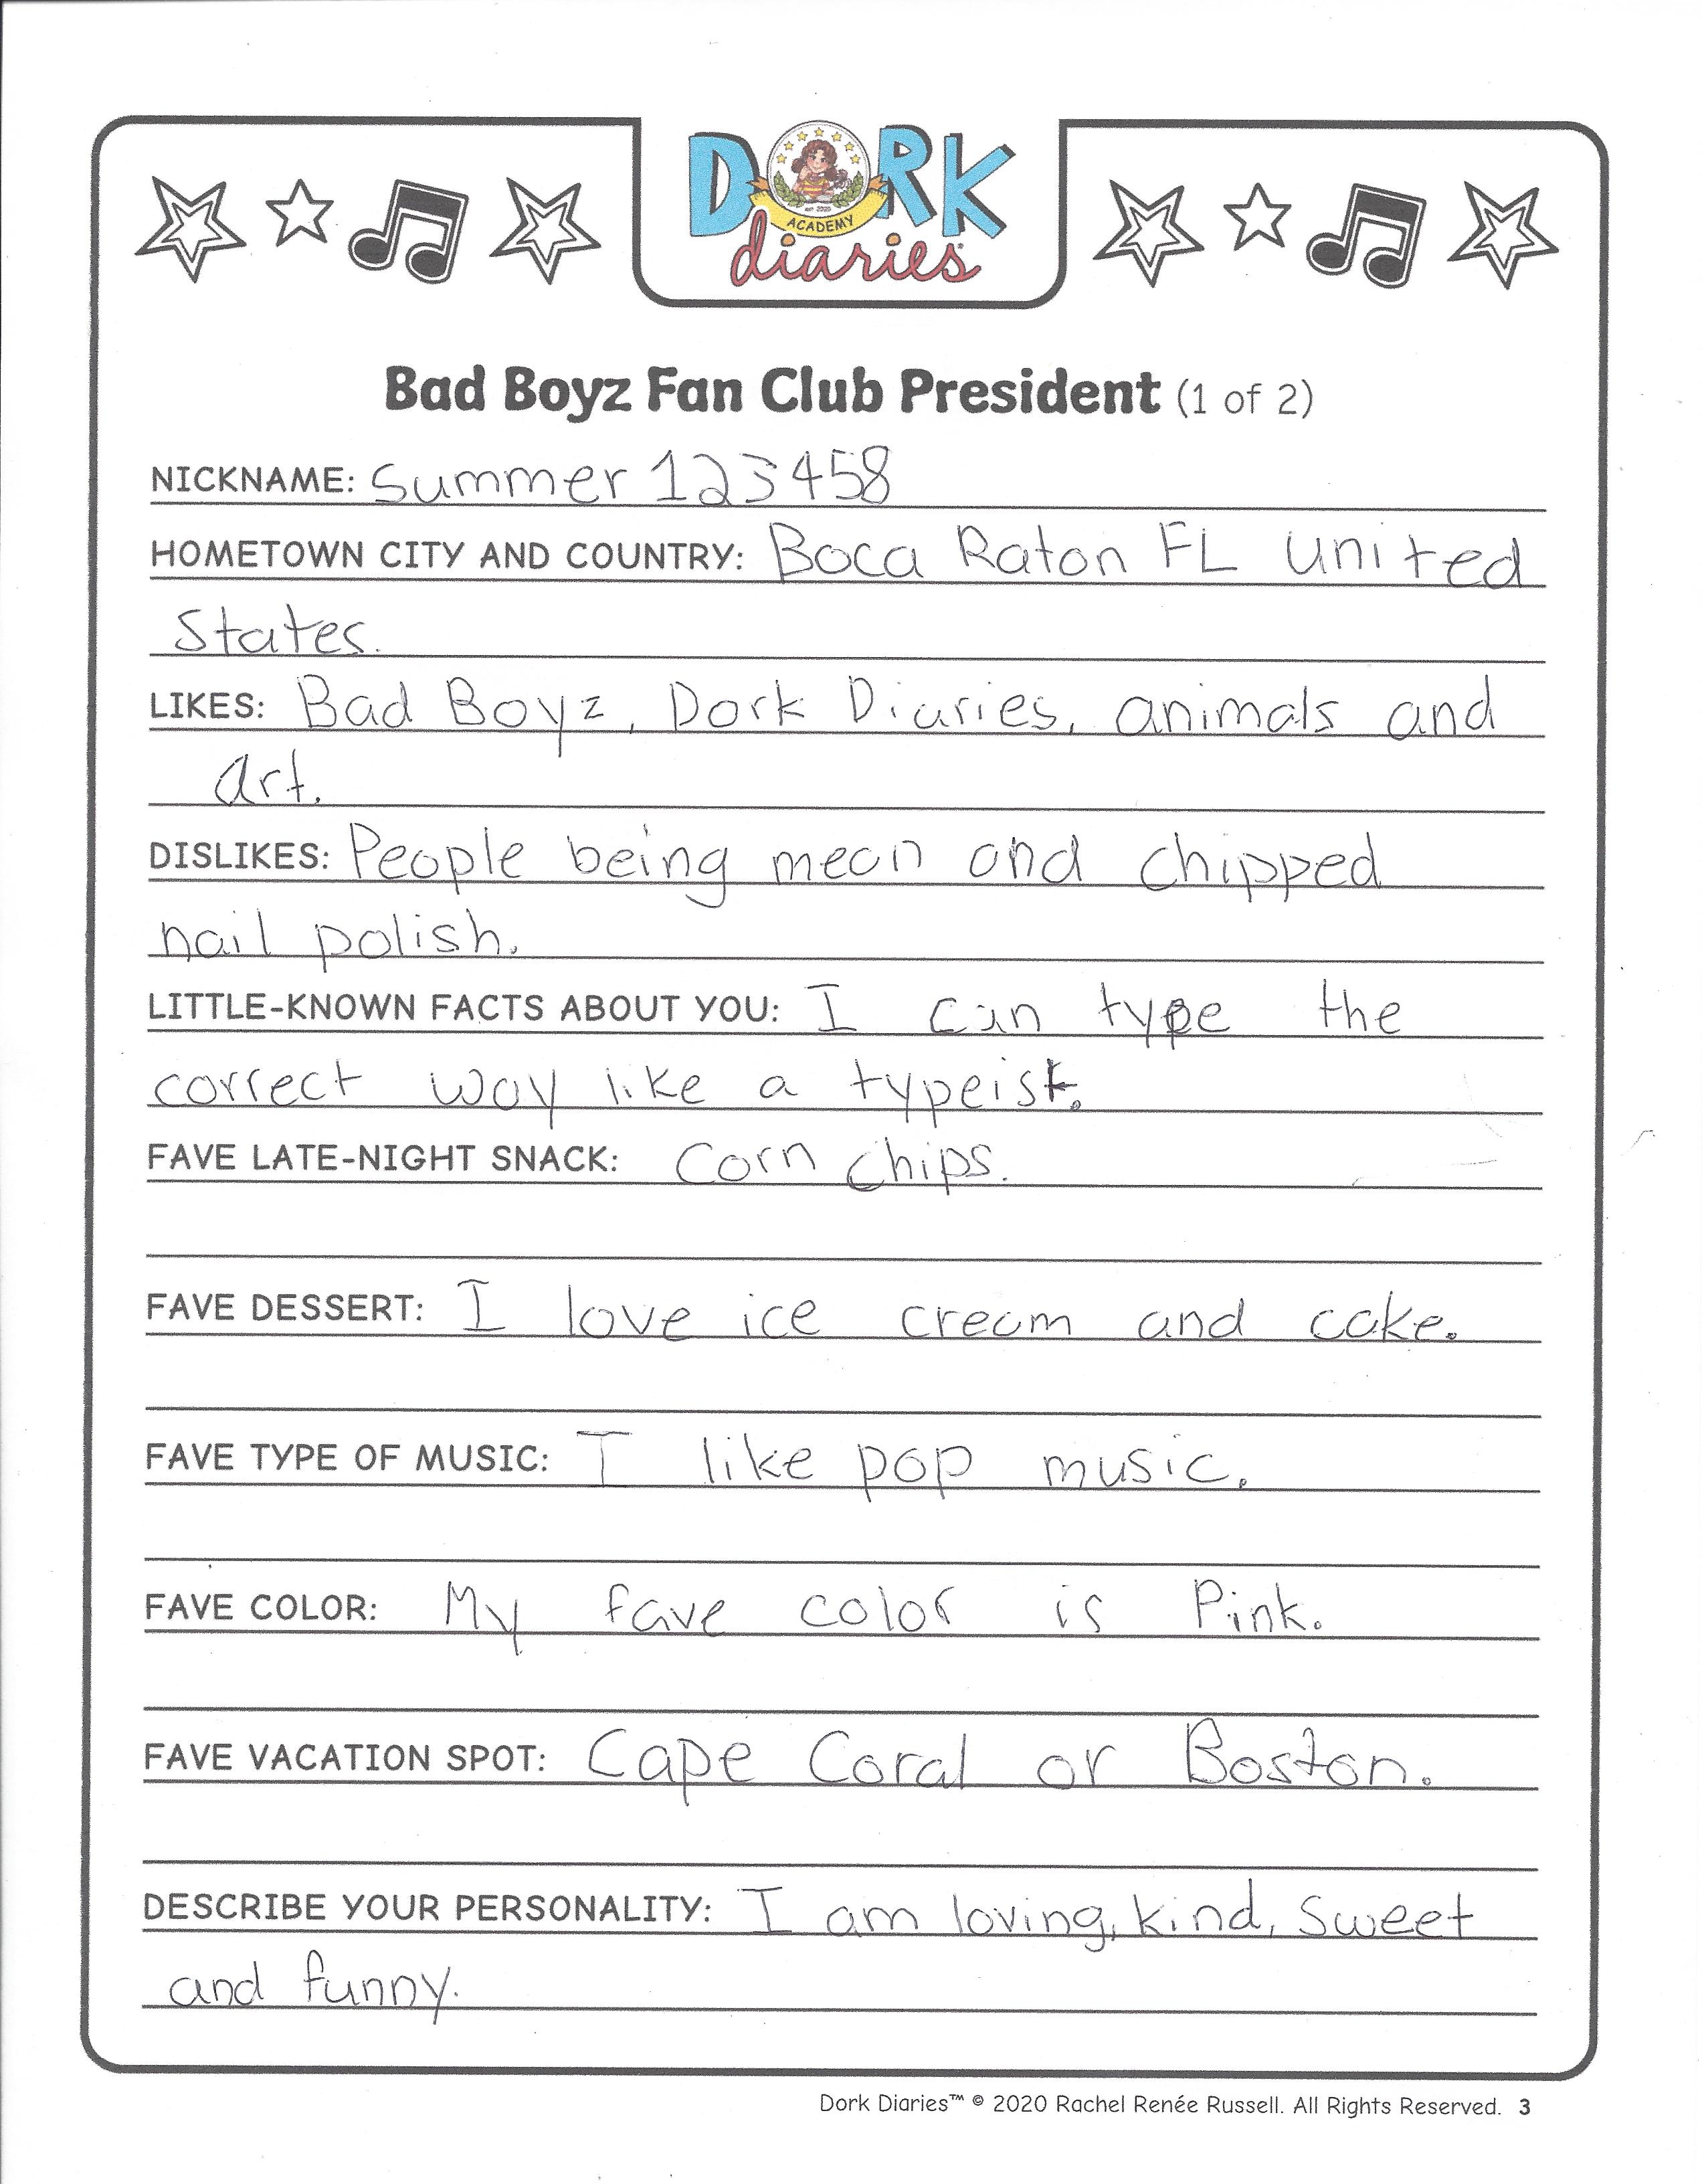 DORK
EST 2020
ACADEMY
diaries
Bad Boyz Fan Club President (1 of 2)
NICKNAME: Summer 123458
HOMETOWN CITY AND COUNTRY: Boca Raton FL united
States.
LIKES: Bad Boyz, Dork Diaries, animals and
art.
DISLIKES: People being mean and chipped
nail polish.
LITTLE-KNOWN FACTS ABOUT YOU: I can type the
correct way like a typeist.
FAVE LATE-NIGHT SNACK: Corn chips.
FAVE DESSERT: I love ice cream and cake.
FAVE TYPE OF MUSIC: I like pop music.
FAVE COLOR: My fave color is Pink.
FAVE VACATION SPOT: Cape Coral or Boston.
DESCRIBE YOUR PERSONALITY: I am loving, kind, sweet
and funny.
Dork Diaries™ © 2020 Rachel Renée Russell. All Rights Reserved. 3